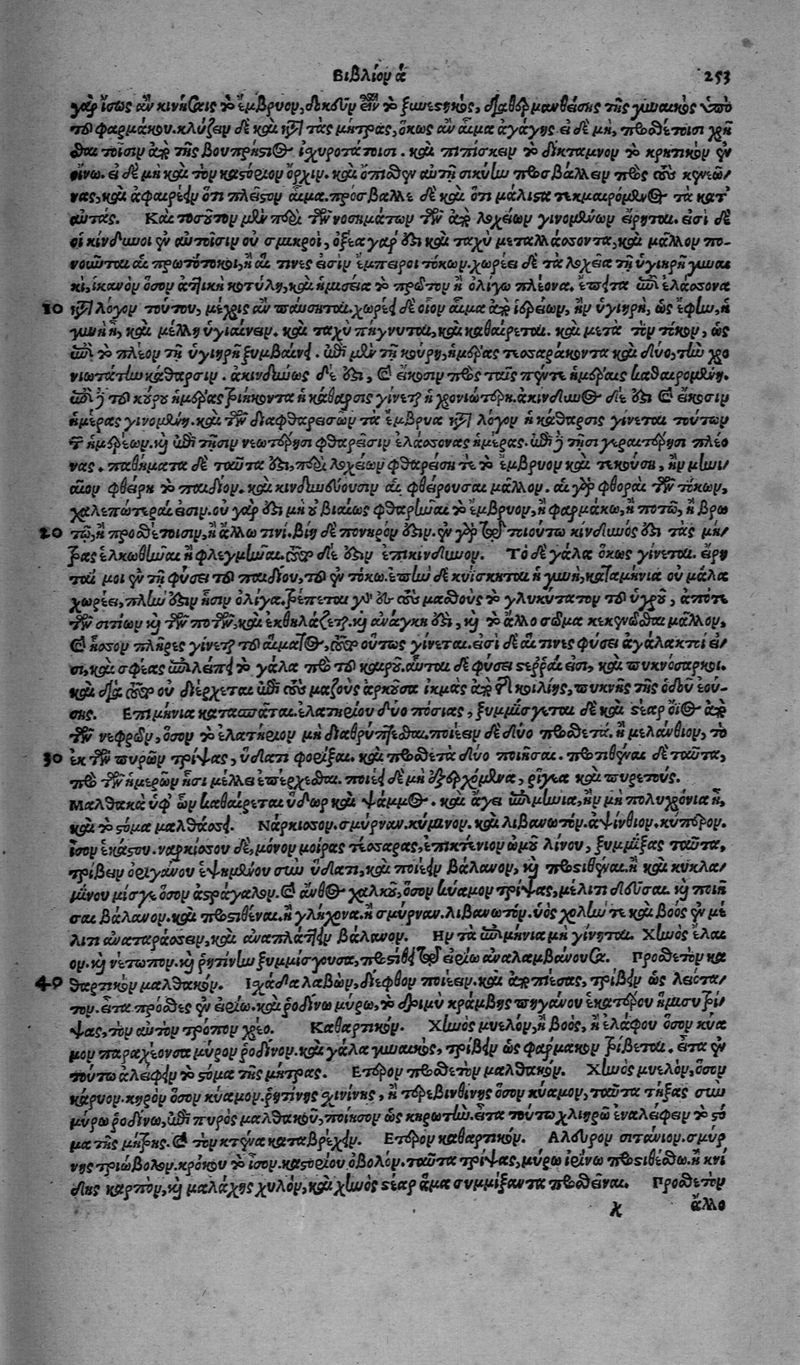 Βιβλίον ά 253
γὰρ ἴσως ἂν κινήσαις τὸ ἔμβρυον, δεινὸν ἐὸν τὸ ξυνεστηκὸς, διαθερμανθείσης τῆς γυναικὸς ὑπὸ
τοῦ φαρμάκου. κλύζειν δὲ καὶ κατὰ τὰς μήτρας, ὅκως ἂν αἷμα ἀγάγῃς· εἰ δὲ μὴ, προσθέτοισι χρῆ
σθαι τοῖσιν ἀπὸ τῆς βουπρήστιος ἰσχυροτάτοισι. καὶ πιπίσκειν τὸ δίκταμνον τὸ κρητικὸν ἐν
οἴνῳ. εἰ δὲ μὴ καὶ τὸν καστόριον ὄρχιν. καὶ ὄπισθεν αὐτῇ σικύην προσβάλλειν πρὸς τοὺς κενεῶ/
νας, καὶ ἀφαιρέειν ὅτι πλεῖστον αἷμα. πρόσβαλλε δὲ καὶ ὅτι μάλιστα τεκμαιρόμενος τὰ κατ'
αὐτάς. Καὶ τοσοῦτον μὲν περὶ τῶν νοσημάτων τῶν ἀπὸ λοχείων γινομένων εἴρηται. εἰσὶ δὲ
οἱ κίνδυνοι ἐν αὐτοῖσιν οὐ σμικροὶ, ὀξεῖα γάρ ἐστι καὶ ταχὺ μεταλλάσσοντα, καὶ μᾶλλον πο-
νοῦνται αἱ πρωτότοκοι, ἢ αἵ τινες εἰσὶν ἔμπειροι τόκων. χωρέει δὲ τὰ λοχεῖα τῇ ὑγιηρῇ γυναι
κὶ, ἱκανὸν ὅσον ἀττικὴ κοτύλη, καὶ ἡμισεία τὸ πρῶτον ἢ ὀλίγῳ πλέονα, ἔπειτα ἐπὶ ἐλάσσονα
10 κατὰ λόγον τούτου, μέχρις ἂν παύσηται. χωρέει δὲ οἷον αἷμα ἀπὸ ἱερείων, ἢν ὑγιηρὴ, ὡς ἔφην, ἡ
γυνὴ ᾖ, καὶ μέλλῃ ὑγιαίνειν. καὶ ταχὺ πήγνυται, καὶ καθαίρεται. καὶ μετὰ τὸν τόκον, ὡς
ἐπὶ τὸ πλέον τῇ ὑγιηρῇ ξυμβαίνει. ἐπὶ μὲν τῇ κούρῃ, ἡμέρας τεσσαράκοντα καὶ δύο, τὴν χρο
νιωτάτην κάθαρσιν. ἀκινδύνως δέ ἐστι, καὶ εἴκοσιν πρὸς ταῖς πέντε ἡμέραις καθαιρομένη.
ἐπὶ δὲ τῷ κούρῳ ἡμέρας τριήκοντα ἡ κάθαρσις γίνεται ἡ χρονιωτέρη. ἀκίνδυνος δέ ἐστι καὶ εἴκοσιν
ἡμέρας γινομένη. καὶ τῶν διαφθαρεισῶν τὰ ἔμβρυα κατὰ λόγον ἡ κάθαρσις γίνεται τούτων
τῶν ἡμερέων. καὶ ἐπὶ τῇσιν νεωτέρῃσι φθαρείσιν ἐλάσσονας ἡμέρας. ἐπὶ δὲ τῇσι γεραιτέρῃσι πλέο
νας. παθήματα δὲ ταῦτά ἐστι, περὶ λοχείων φθαρείσῃ τε τὸ ἔμβρυον καὶ τεκούσῃ, ἢν μὴ νή/
πιον φθείρῃ τὸ παιδίον. καὶ κινδυνεύουσιν αἱ φθείρουσαι μᾶλλον. αἱ γὰρ φθοραὶ τῶν τόκων,
χαλεπώτεραι εἰσίν. οὐ γάρ ἐστι μὴ οὐ βιαίως φθαρῆναι τὸ ἔμβρυον, ἢ φαρμάκῳ, ἢ ποτῷ, ἢ βρω
20 τῷ, ἢ προσθέτοισιν, ἢ ἄλλῳ τινί. βίη δὲ πονηρόν ἐστιν. ἐν γὰρ τῷ τοιούτῳ κίνδυνός ἐστι τὰς μή/
τρας ἑλκωθῆναι ἢ φλεγμῆναι. τοῦτο δέ ἐστιν ἐπικίνδυνον. Τὸ δὲ γάλα ὅκως γίνεται. εἴρη
ταί μοι ἐν τῇ φύσει τοῦ παιδίου, τοῦ ἐν τόκῳ. ἐπὴν δὲ κυΐσκηται ἡ γυνὴ, καταμήνια οὐ μάλα
χωρέει, πλὴν ἔστιν ᾗσιν ὀλίγα. τρέπεται γὰρ ἐς τοὺς μαζοὺς τὸ γλυκύτατον τοῦ ὑγροῦ, ἀπό τε
τῶν σιτίων καὶ τῶν ποτῶν, καὶ ἐκθηλάζεται. καὶ ἀνάγκη ἐστὶ, καὶ τὸ ἄλλο σῶμα κεκενῶσθαι μᾶλλον,
καὶ ἧσσον πλῆρες γίνεται τοῦ αἵματος, τοῦτο οὕτως γίνεται. εἰσὶ δὲ αἵ τινες φύσει ἀγάλακτοι εἰ
σι, καὶ σφέας ἐπιλείπει τὸ γάλα πρὸ τοῦ καιροῦ. αὗται δὲ φύσει στερραί εἰσι, καὶ πυκνόσαρκοι.
καὶ διὰ τοῦτο οὐ διέρχεται ἐπὶ τοὺς μαζοὺς ἀρκοῦσα ἰκμὰς ἀπὸ τῆς κοιλίης, πυκνῆς τῆς ὁδοῦ ἐού-
σης. Επιμήνια κατασπᾶται. ἐλατηρίου δύο πόσιας, ξυμμίσγεται δὲ καὶ στέαρ οἰὸς ἀπὸ
τῶν νεφρῶν, ὅσον τὸ ἐλατήριον μὴ διαθρύπτεσθαι. ποιέειν δὲ δύο πρόσθετα. ἢ μελάνθιον, τὸ
30 ἐκ τῶν πυρῶν τρίψας, ὕδατι φορύξαι. καὶ πρόσθετα δύο ποιῆσαι. προστιθέναι δὲ ταῦτα,
πρὸ τῶν ἡμερῶν ᾗσι μέλλει ἐπέρχεσθαι. ποιέει δὲ μὴ ἐξερχόμενα, ῥίγεα καὶ πυρετούς.
Μαλθακὰ ὑφ' ὧν καθαίρεται ὕδωρ καὶ ψάμμος. καὶ ἄγει ἐπιμήνια, ἢν μὴ πολυχρόνια ᾖ,
καὶ τὸ στόμα μαλθάσσει. Νάρκισσον. σμύρναν. κύμινον. καὶ λιβανωτόν. ἀψίνθιον. κύπερον.
ἴσον ἑκάστου. ναρκίσσου δὲ, μόνον μοίρας τέσσαρας, ἐπικτένιον ὠμοῦ λίνου, ξυμμίξας ταῦτα,
τρίβειν ὀριγάνου ἑψημένου σὺν ὕδατι, καὶ ποιέειν βάλανον, καὶ προστιθέναι. ἢ καὶ κύκλα/
μίνου μίσγε ὅσον ἀστράγαλον. καὶ ἄνθος χαλκοῦ, ὅσον κύαμον τρίψας, μέλιτι δεῦσαι. καὶ ποιῆ
σαι βάλανον. καὶ προστιθέναι. ἢ γλήχονα. ἢ σμύρναν. λιβανωτόν. ὑὸς χολήν τε καὶ βοὸς ἐν μέ
λιτι ἀναταράσσειν, καὶ ἀναπλάττειν βάλανον. Ην τὰ ἐπιμήνια μὴ γίνηται. Χηνὸς ἔλαι
ον. καὶ νέτωπον. καὶ ῥητίνην ξυμμίσγουσα, προστιθέσθω εἰρίῳ ἀναλαμβάνουσα. Πρόσθετον κα
40 θαρτικὸν μαλθακόν. Ισχάδα λαβὼν, δίεφθον ποιέειν. καὶ ἀποπιέσας, τρίβειν ὡς λειότα/
τον. εἶτα πρόσθες ἐν εἰρίῳ. καὶ ῥοδίνῳ μύρῳ, τὸ δριμὺ κράμβης πηγάνου ἑκατέρου ἥμισυ τρί/
ψας, τὸν αὐτὸν τρόπον χρέο. Καθαρτικόν. Χηνὸς μυελὸν, ἢ βοὸς, ἢ ἐλάφου ὅσον κύα
μον παραχέουσα μύρον ῥόδινον. καὶ γάλα γυναικὸς, τρίβειν ὡς φάρμακον τρίβεται. εἶτα ἐν
τούτῳ ἀλείφειν τὸ στόμα τῆς μήτρας. Ετερον πρόσθετον μαλθακόν. Χηνὸς μυελὸν, ὅσον
κάρυον. κηρὸν ὅσον κύαμον. ῥητίνης σχινίνης, ἢ τερεβινθίνης ὅσον κύαμον, ταῦτα τήξας σὺν
μύρῳ ῥοδίνῳ, ἐπὶ πυρὸς μαλθακοῦ, ποίησον ὡς κηρωτήν. εἶτα τούτῳ χλιηρῷ ἐναλείφειν τὸ στό
μα τῆς μήτρης. καὶ τὸν κτένα καταβρέχειν. Ετερον καθαρτικόν. Αλεύρου σιτάνιον. σμύρ
νης τριώβολον. κρόκου τὸ ἴσον. καστορίου ὀβολόν. ταῦτα τρίψας, μύρῳ ἰρίνῳ προστιθέσθω. ἢ κνί
δης καρπὸν, καὶ μαλάχης χυλὸν, καὶ χηνὸς στέαρ ἅμα συμμίξαντα προσθεῖναι. Πρόσθετον
χ ἄλλο